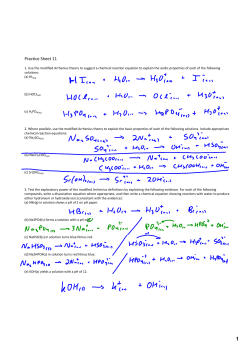 Practice Sheet 11
1. Use the modified Arrhenius theory to suggest a chemical reaction equation to explain the acidic properties of each of the following
solutions:
(a) HI(aq)
HI(aq) + H₂O(l) → H₃O⁺(aq) + I⁻(aq)
(b) HOCl(aq)
HOCl(aq) + H₂O(l) → OCl⁻(aq) + H₃O⁺(aq)
(c) H₃PO₄(aq)
H₃PO₄(aq) + H₂O(l) → H₂PO₄⁻(aq) + H₃O⁺(aq)
2. Where possible, use the modified Arrhenius theory to explain the basic properties of each of the following solutions. Include appropriate
chemical reaction equations.
(a) Na₂SO₄(aq)
Na₂SO₄(aq) → 2Na⁺(aq) + SO₄²⁻(aq)
SO₄²⁻(aq) + H₂O(l) → OH⁻(aq) + HSO₄⁻(aq)
(b) NaCH₃COO(aq)
NaCH₃COO(aq) → Na⁺(aq) + CH₃COO⁻(aq)
CH₃COO⁻(aq) + H₂O(l) → CH₃COOH(aq) + OH⁻(aq)
(c) Sr(OH)₂(aq)
Sr(OH)₂(aq) → Sr²⁺(aq) + 2OH⁻(aq)
3. Test the explanatory power of the modified Arrhenius definition by explaining the following evidence. For each of the following
compounds, write a dissociation equation where appropriate, and then write a chemical equation showing reactions with water to produce
either hydronium or hydroxide ions (consistent with the evidence).
(a) HBr(g) in solution shows a pH of 2 on pH paper.
HBr(aq) + H₂O(l) → H₃O⁺(aq) + Br⁻(aq)
(b) Na₃PO₄(s) forms a solution with a pH of
Na₃PO₄(s) → 3Na⁺(aq) + PO₄³⁻(aq) PO₄³⁻(aq) + H₂O(l) → HPO₄²⁻(aq) + OH⁻(aq)
(c) NaHSO₄(s) in solution turns blue litmus red.
NaHSO₄(s) → Na⁺(aq) + HSO₄⁻(aq) HSO₄⁻(aq) + H₂O(l) → H₃O⁺(aq) + SO₄²⁻(aq)
(d) Na₂HPO₄(s) in solution turns red litmus blue.
Na₂HPO₄(s) → 2Na⁺(aq) + HPO₄²⁻(aq) HPO₄²⁻(aq) + H₂O(l) → OH⁻(aq) + H₂PO₄⁻(aq)
(e) KOH(s) yields a solution with a pH of 12.
KOH(s) → K⁺(aq) + OH⁻(aq)
1